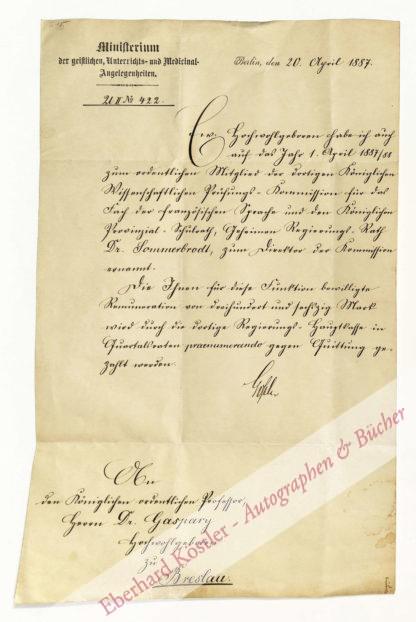 Ministerium
der geistlichen, Unterrichts- und Medicinal-
Angelegenheiten.
U II № 422.
Berlin, den 20. April 1887.
Ew. Hochwohlgeboren habe ich auch
auf das Jahr 1. April 1887/88
zum ordentlichen Mitglied der dortigen Königlichen
Wissenschaftlichen Prüfungs-Kommission für das
Fach der französischen Sprache und den Königlichen
Provinzial-Schulrath, Geheimen Regierungs-Rath
Dr. Sommerbrodt, zum Direktor der Kommission
ernannt.
Die Ihnen für diese Funktion bewilligte
Remuneration von dreihundert und sechszig Mark
wird durch die dortige Regierungs-Hauptkasse in
Quartalsraten praenumerando gegen Quittung ge-
zahlt werden.
An
den Königlichen ordentlichen Professor,
Herrn Dr. Gaspary
Hochwohlgeboren
zu
Breslau.
Eberhard Köstler - Autographen & Bücher